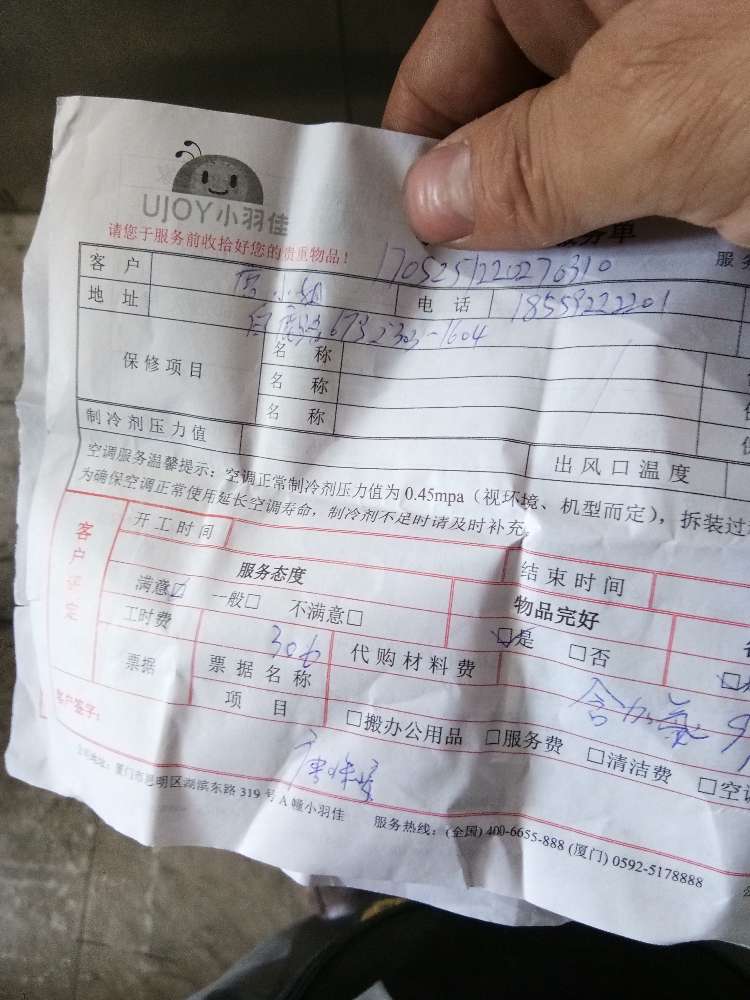 UJOY小羽佳
务单
请您于服务前收拾好您的贵重物品！
1705251220270310
服务
客户
小姐
电话 18559222201
地址
673 2303-1604
保修项目 名称
名称
名称
制冷剂压力值 出风口温度
空调服务温馨提示：空调正常制冷剂压力值为 0.45mpa（视环境、机型而定），拆装过
为确保空调正常使用延长空调寿命，制冷剂不足时请及时补充
客户评定
开工时间 结束时间
服务态度 物品完好
满意☑ 一般□ 不满意□ ☑是 □否
工时费 306 代购材料费
含加氟
票据 票据名称
项目 □搬办公用品 □服务费 □清洁费 □空调
客户签字：
公司地址：厦门市思明区湖滨东路 319 号 A 幢小羽佳 服务热线：(全国) 400-6655-888 (厦门) 0592-5178888